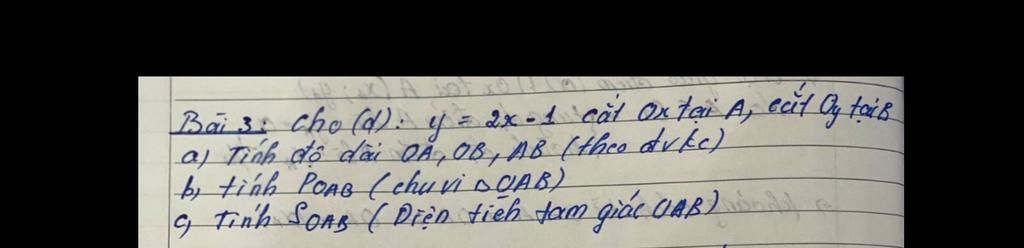 Bài 3: Cho (d): y = 2x - 1 cắt Ox tại A, cắt Oy tại B
a) Tính độ dài OA, OB, AB (theo đvtc)
b, tính POAB (chu vi △OAB)
c, Tính SOAB (Diện tích tam giác OAB)